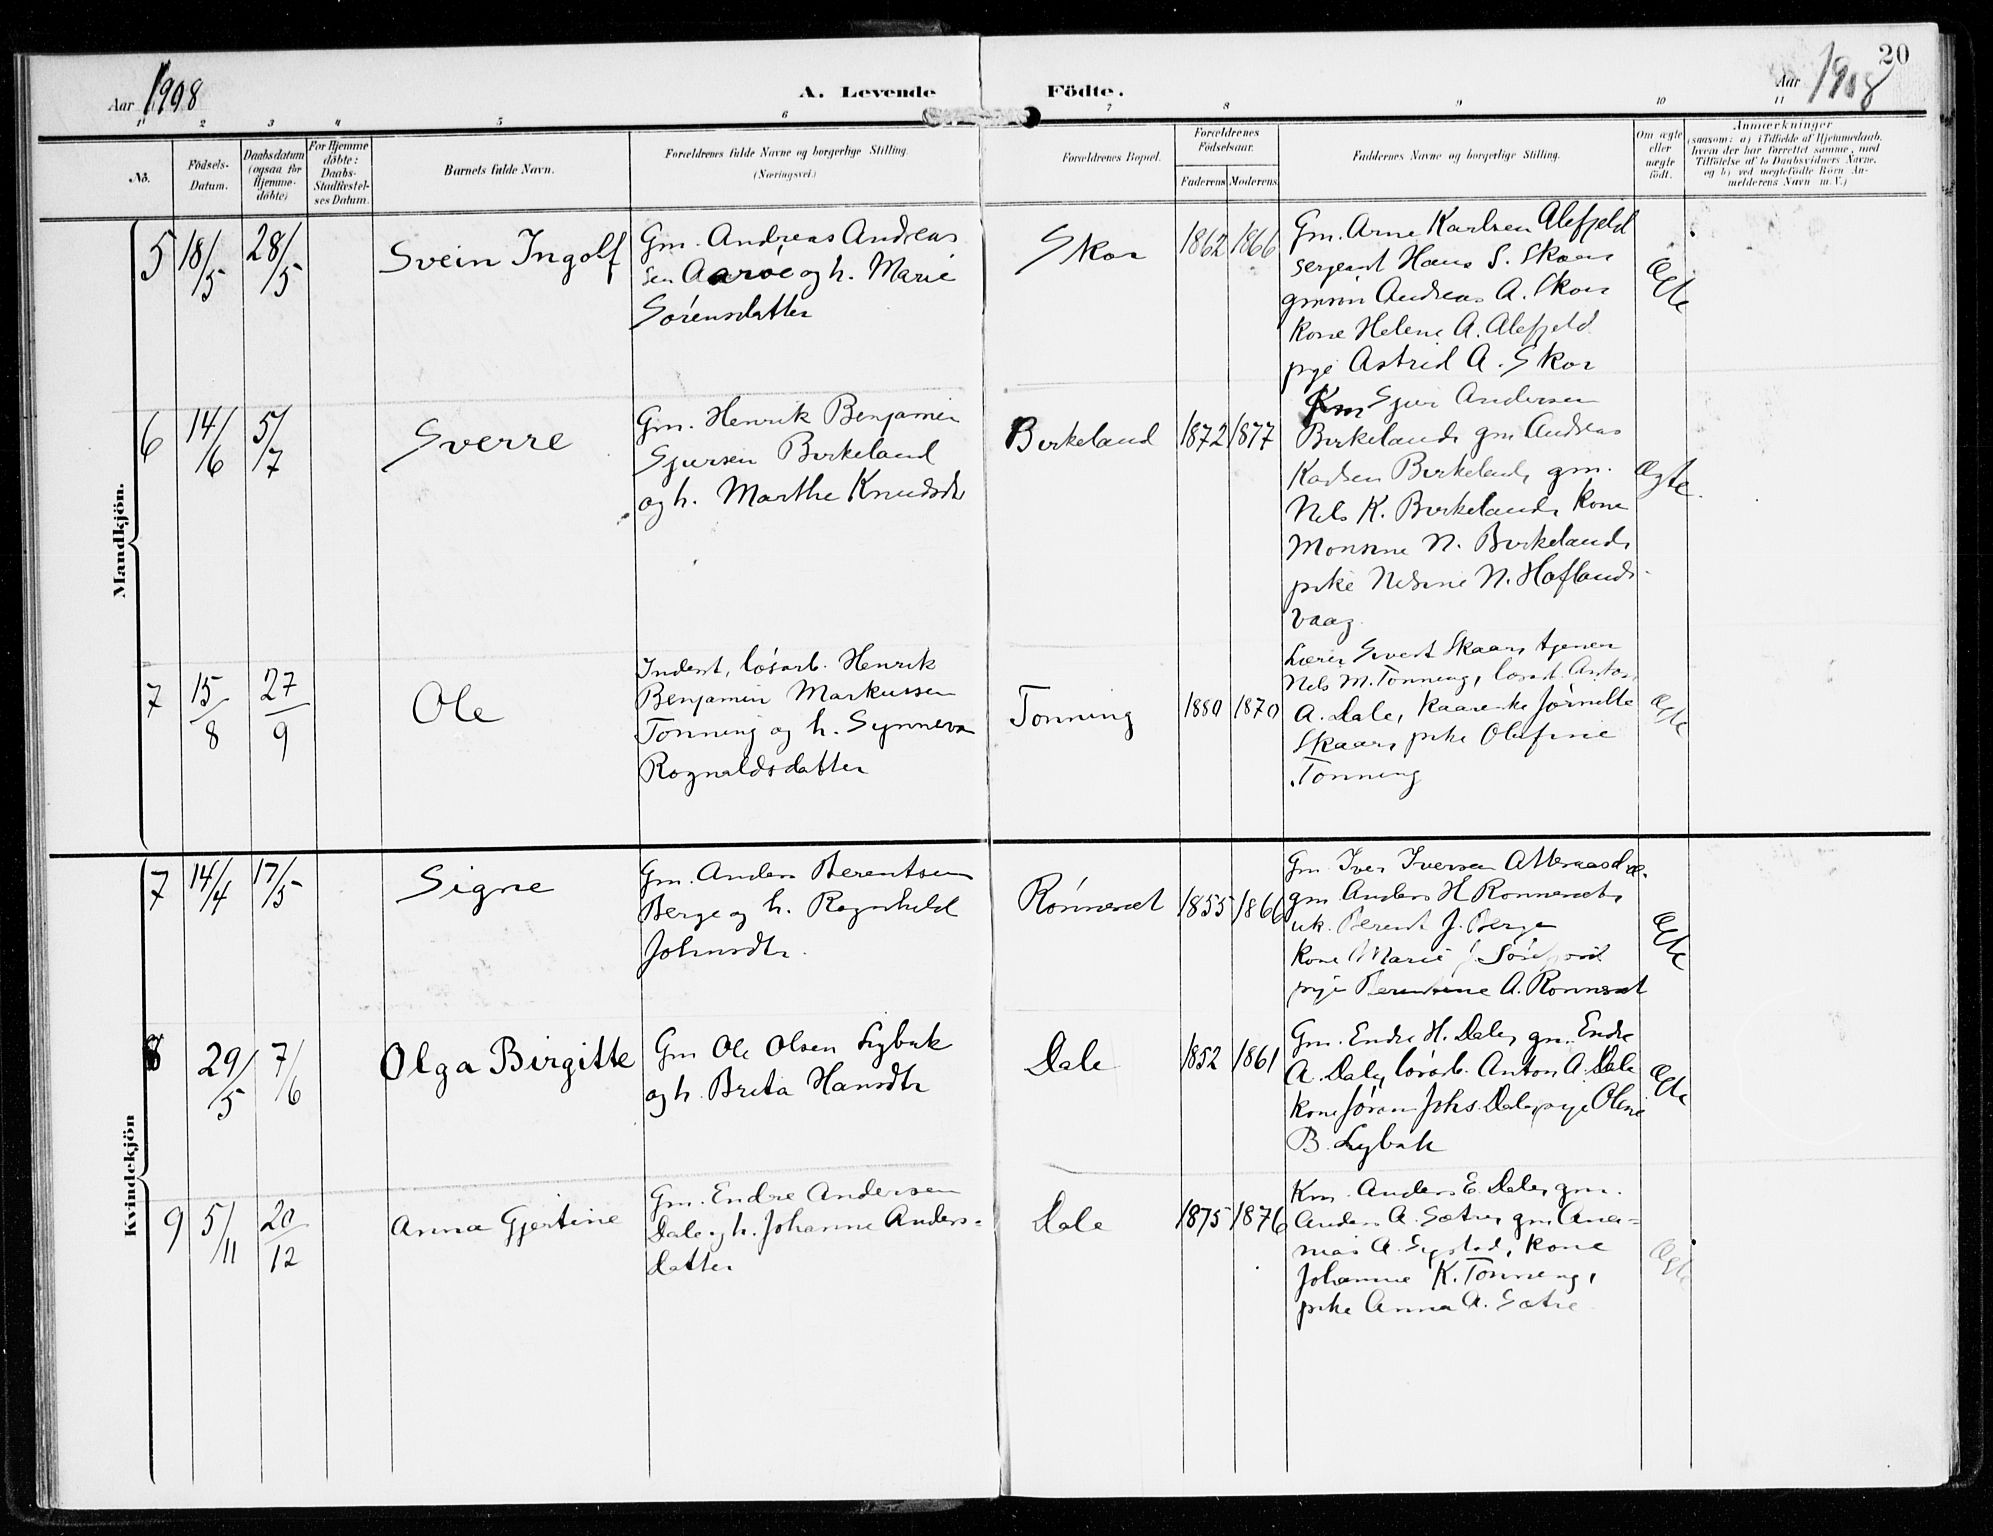 20
Aar 1908
A. Levende Födte.
Aar 1908
1 2 3 4 5 6 7 8 9 10 11
No.
Födsels-Datum.
Daabsdatum (ogsaa for Hjemme-döbte)
For Hjemme döbte: Daabs-Stadfæstel-ses Datum.
Barnets fulde Navn.
Forældrenes fulde Navne og borgerlige Stilling.
(Næringsvei.)
Forældrenes Bopæl.
Forældrenes Födselsaar.
Faderens Moderens
Faddernes Navne og borgerlige Stilling.
Om ægte eller uægte födt.
Anmærkninger
(saasom: a) i Tilfælde af Hjemmedaab, hvem der har forrettet samme, med Tilföielse af to Daabsvidners Navne, og b) ved uægtefödte Börn An-melderens Navn m. V.)
Mandkjön.
5 18/5 28/5 Svein Ingolf
Gm. Andreas Andreas
sen Aarøe og h. Marie
Sørensdatter
Skor 1862 1866
Gm. Arne Karlsen Alefjeld
sergeant Hans S. Skaar
gmsøn Andreas A. Skor
kone Helene A. Alefjeld
pige Astrid A. Skor
Ægte
6 14/6 5/7 Sverre
Gm. Henrik Benjamin
Sjursen Birkeland
og h. Marthe Knudsdr
Birkeland 1872 1877
Km Sjur Andersen
Birkeland, gm Andreas
Karlsen Birkeland, gm.
Nils K. Birkeland, kone
Monsine N. Birkeland,
pike Nilsine N. Haflands-
vaag.
Ægte.
7 15/8 27/9 Ole
Inderst, løsarb. Henrik
Benjamin Markussen
Tonning og h. Synneva
Rognaldsdatter
Tonning 1880 1870
Lærer Sivert Skaar, tjener
Nils M. Tonning, løsarb. Anton
A. Dale, Jørnette
Skaar, pike Olefine
Tonning
Ægte
Kvindekjön
7 14/4 17/5 Signe
Gm. Anders Berentsen
Berge og h. Ragnhild
Johnsdtr.
Rönneset 1855 1866
Gm Iver Iversen
gm Anders H Rønneset,
uk. Berent J. Berge
kone Marie
pige A. Rønneset
Ægte
8 29/5 7/6 Olga Birgitte
Gm Ole Olsen Lybæk
og h. Brita Hansdtr
Dale 1852 1861
Gm. Endre H. Dale, gm. Endre
A. Dale, løsarb. Anton A. Dale
kone Jøran Johs. Dale, pige Oline
B. Lybæk
Ægte
9 5/11 20/12 Anna Gjertine
Gm. Endre Andersen
Dale og h. Johanne Anders-
datter
Dale 1875 1876
Km. Anders E. Dale, gm.
Anders A. Sætre, gm Ana-
nias A. Systad, kone
Johanne K. Tonning,
pike Anna A. Sætre
Ægte